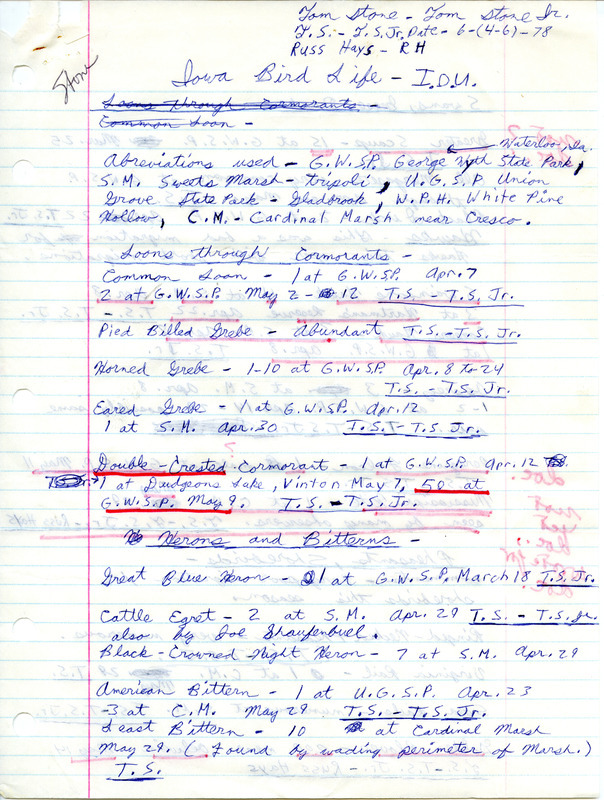 Tom Stone - Tom Stone Jr.
T.S. - T.S. Jr. Date - 6-(4-6)-78
Russ Hays - RH
Stone
Iowa Bird Life - I.O.U.
Loons through Cormorants -
Common Loon -
Waterloo, Ia.
Abreviations used - G.W.S.P. George Wyth State Park,
S.M. Sweets Marsh - tripoli, U.G.S.P Union
Grove State Park - Gladbrook, W.P.H. White Pine
Hollow, C.M. - Cardinal Marsh near Cresco.
Loons through Cormorants -
Common Loon - 1 at G.W.S.P. Apr. 7
2 at G.W.S.P. May 2 - 12 T.S. - T.S. Jr.
Pied Billed Grebe - Abundant T.S. - T.S. Jr.
Horned Grebe - 1-10 at G.W.S.P. Apr. 8 to 24
T.S. - T.S. Jr.
Eared Grebe - 1 at G.W.S.P. Apr. 12
1 at S.M. Apr. 30 T.S.T- T.S. Jr.
Double-Crested Cormorant - 1 at G.W.S.P. Apr. 12
1 at Dudgeons Lake, Vinton May 7, 50 at
G.W.S.P. May 9. T.S. - T.S. Jr.
Herons and Bitterns -
Great Blue Heron - 1 at G.W.S.P. March 18 T.S. Jr.
Cattle Egret - 2 at S.M. Apr. 29 T.S. - T.S. Jr.
also by Joe Shaufenbuel.
Black-Crowned Night Heron - 7 at S.M. Apr. 29
American Bittern - 1 at U.G.S.P. Apr. 23
-3 at C.M. May 29 T.S. - T.S. Jr.
Least Bittern - 10 at Cardinal Marsh
May 29. (Found by wading perimeter of Marsh.)
T.S.